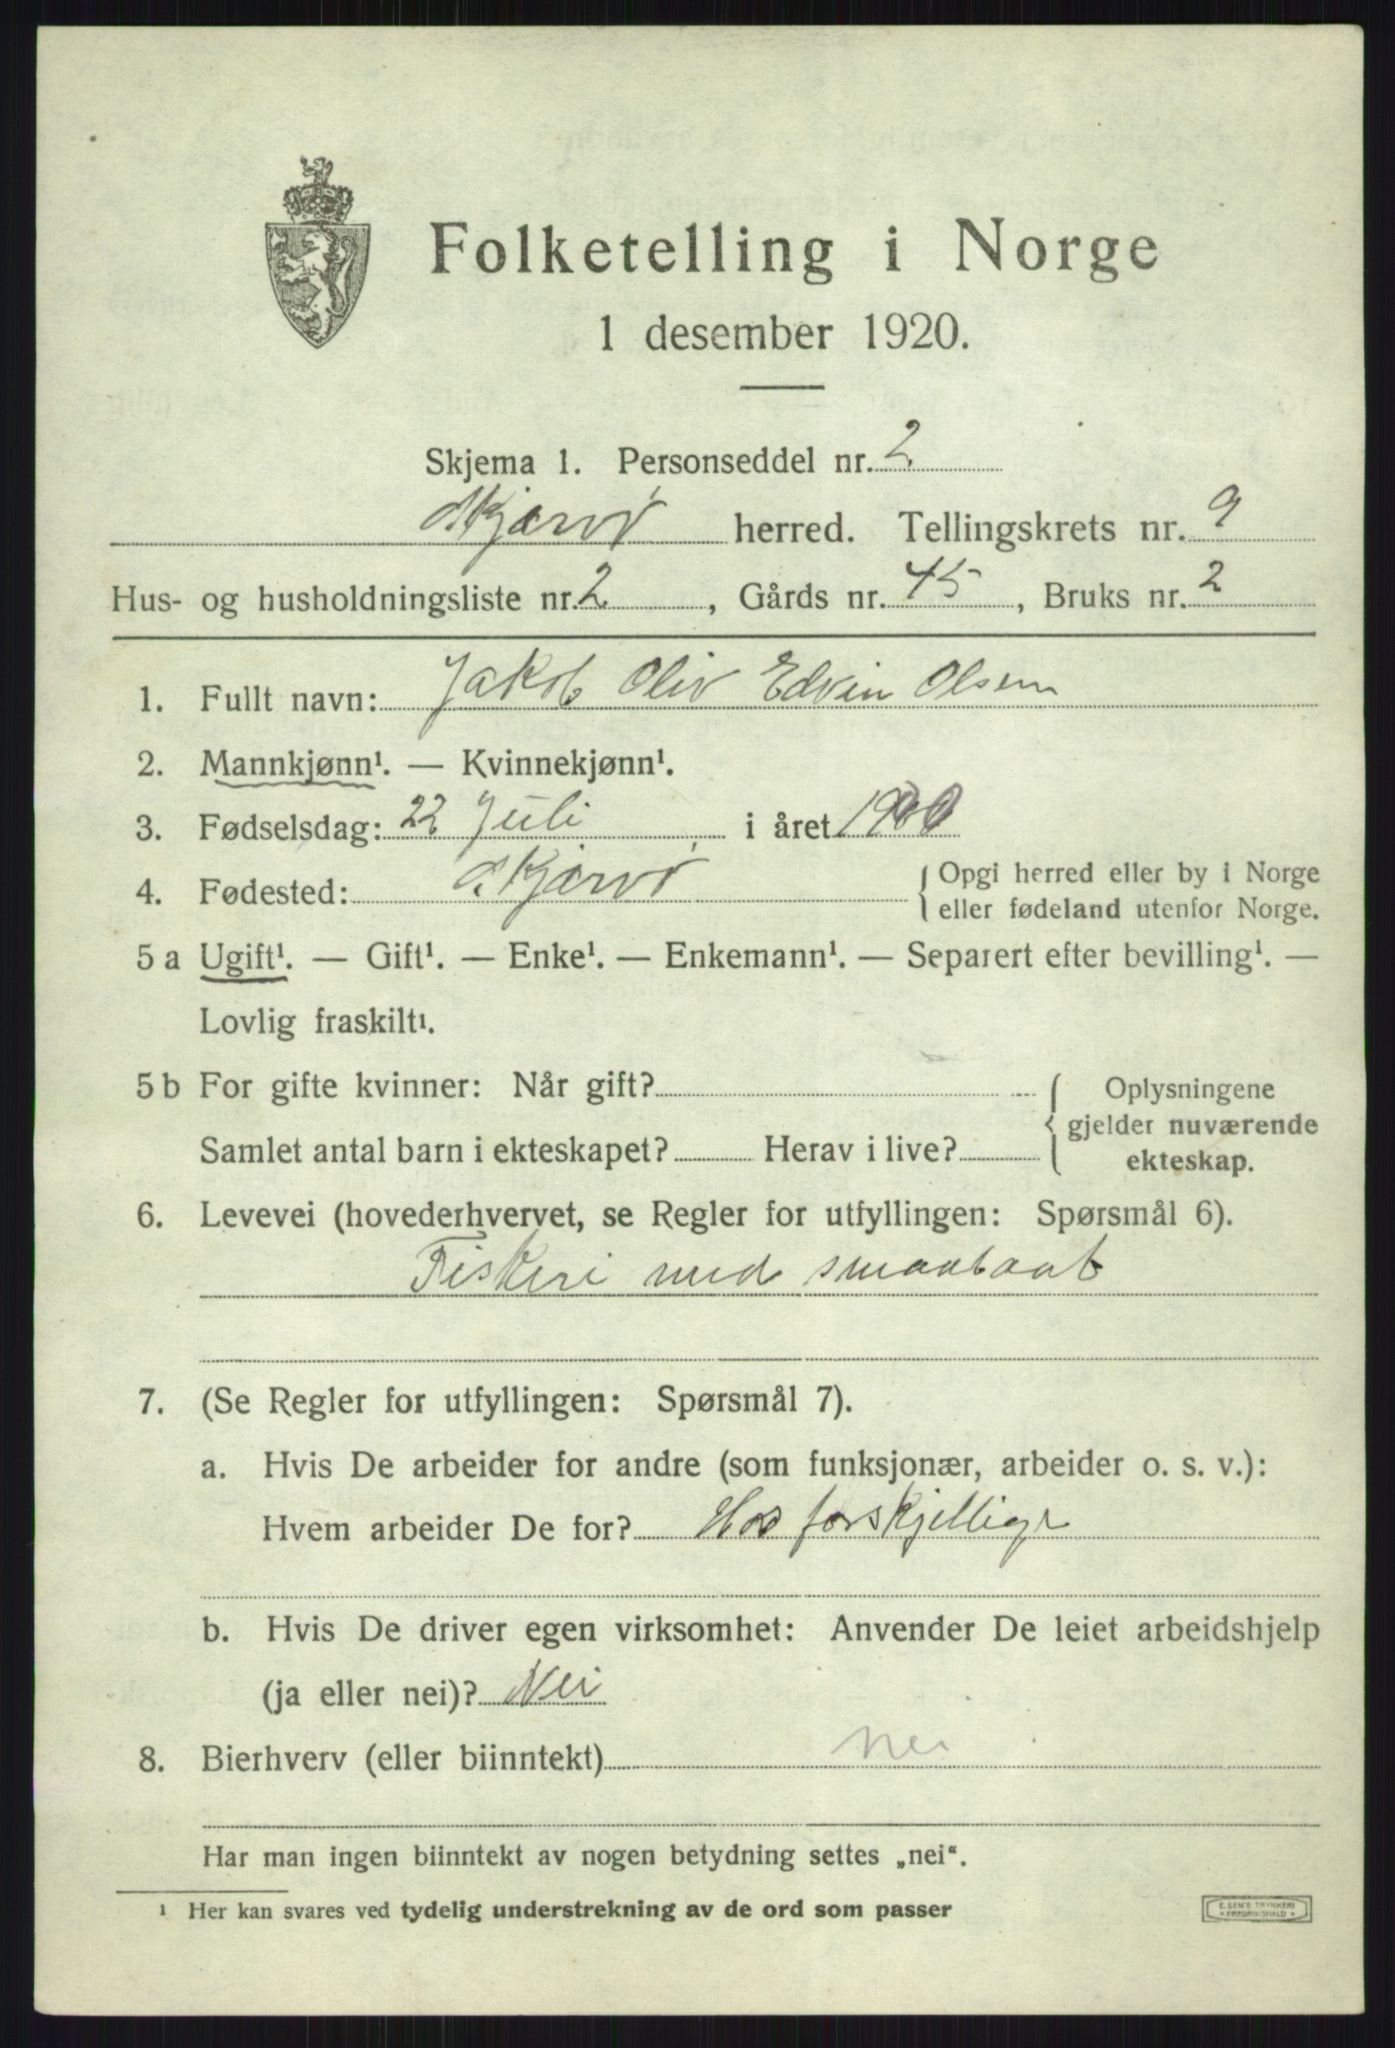 Folketelling i Norge
1 desember 1920.
Skjema 1. Personseddel nr. 2
Skjervø herred. Tellingskrets nr. 9
Hus- og husholdningsliste nr. 2, Gårds nr. 45, Bruks nr. 2
1. Fullt navn: Jakob Oliv Edvin Olsen
2. Mannkjønn¹. — Kvinnekjønn¹.
3. Fødselsdag: 22 Juli, i året 1900
4. Fødested: Skjervø { Opgi herred eller by i Norge
eller fødeland utenfor Norge.
5 a Ugift¹. — Gift¹. — Enke¹. — Enkemann¹. — Separert efter bevilling¹. —
Lovlig fraskilt¹.
5 b For gifte kvinner: Når gift? { Oplysningene
gjelder nuværende
Samlet antal barn i ekteskapet? Herav i live? ekteskap.
6. Levevei (hovederhvervet, se Regler for utfyllingen: Spørsmål 6).
Fiskeri med smaabaat
7. (Se Regler for utfyllingen: Spørsmål 7).
a. Hvis De arbeider for andre (som funksjonær, arbeider o. s. v.):
Hvem arbeider De for? Hos forskjellige
b. Hvis De driver egen virksomhet: Anvender De leiet arbeidshjelp
(ja eller nei)? Nei
8. Bierhverv (eller biinntekt) Nei
Har man ingen biinntekt av nogen betydning settes „nei“.
¹ Her kan svares ved tydelig understrekning av de ord som passer
E. SEM'S TRYKKERI
FREDRIKSHALD